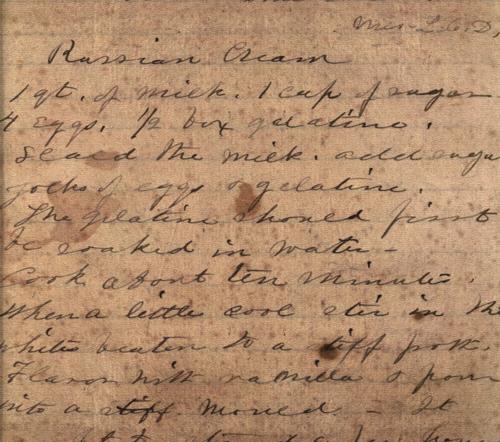 Mrs L. C. D.
Russian Cream
1 qt. of milk. 1 cup of sugar
4 eggs. 1/2 box gelatine.
Scald the milk. add suga
yoeks of eggs & gelatine.
The gelatine should first
be soaked in water -
Cook about ten minutes.
When a little cool stir in the
whites beaten to a stiff froth.
Flavor with vanilla & pour
into a stiff mould. - It